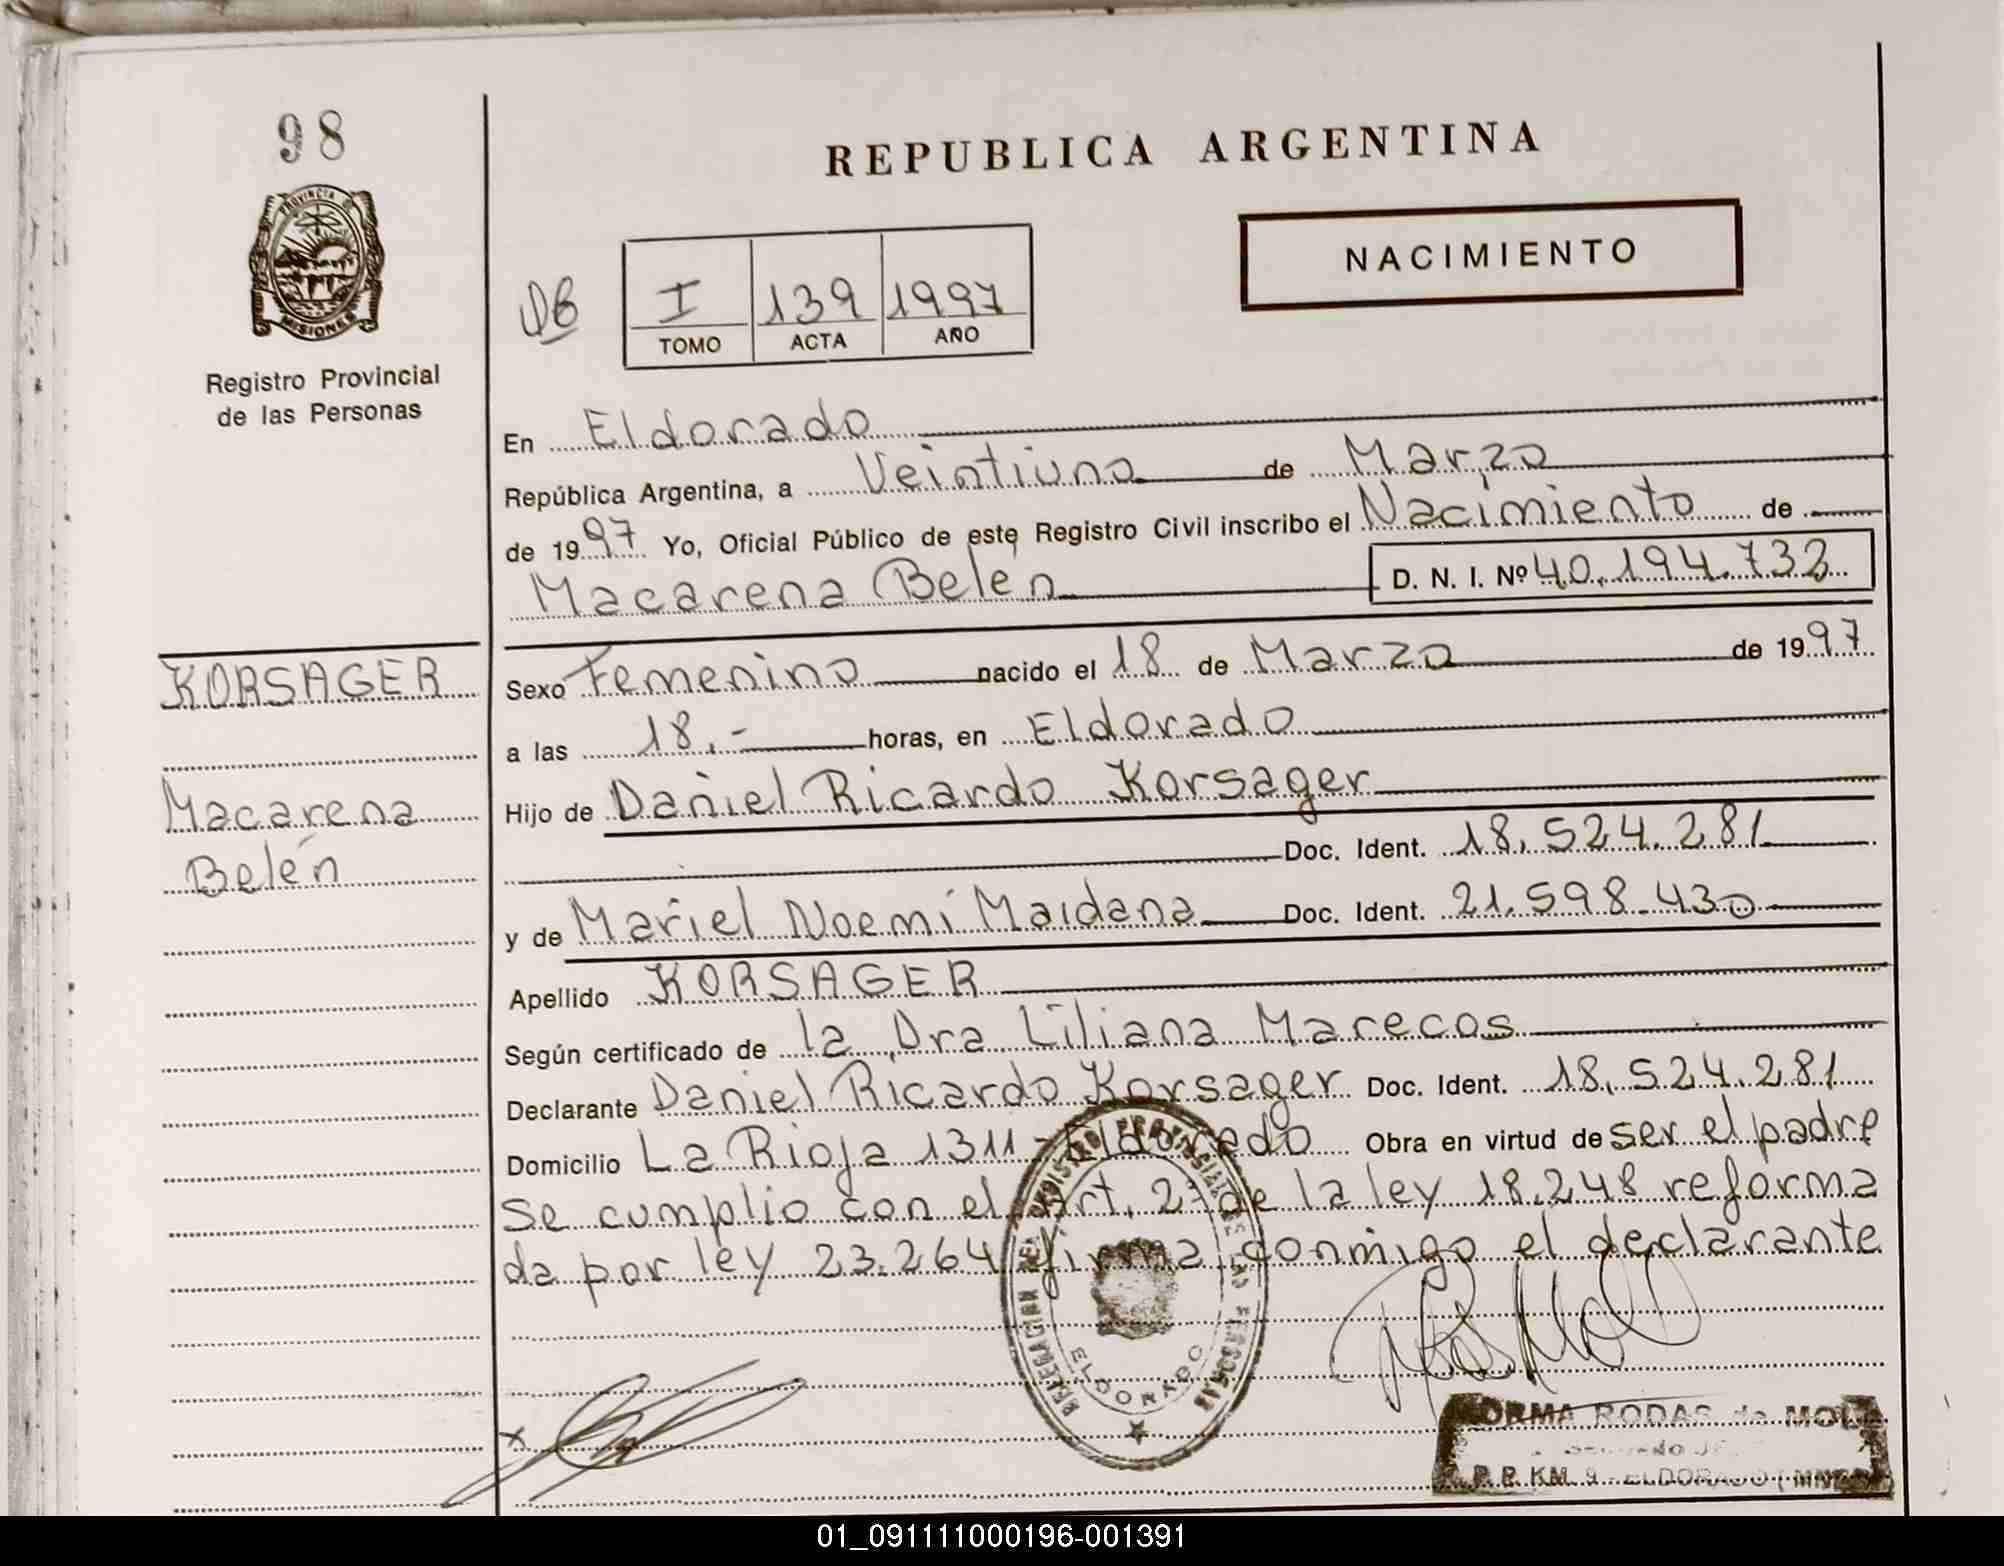 98
PROVINCIA DE
MISIONES
Registro Provincial
de las Personas
REPUBLICA ARGENTINA
NACIMIENTO
I 139 1997
TOMO ACTA AÑO
En Eldorado
República Argentina, a Veintiuno de Marzo
de 1997 Yo, Oficial Público de este Registro Civil inscribo el Nacimiento de
Macarena Belén D. N. I. Nº 40.194.733
KORSAGER
Macarena
Belén
Sexo Femenino nacido el 18 de Marzo de 1997
a las 18.- horas, en Eldorado
Hijo de Daniel Ricardo Korsager
Doc. Ident. 18.524.281
y de Mariel Noemí Maidana Doc. Ident. 21.598.430
Apellido KORSAGER
Según certificado de la Dra Liliana Marecos
Declarante Daniel Ricardo Korsager Doc. Ident. 18.524.281
Domicilio La Rioja 1311 - Eldorado Obra en virtud de ser el padre
se cumplio con el Art. 2º de la ley 18.248 reforma
da por ley 23.264 firma conmigo el declarante
DELEGACION DEL REGISTRO PROVINCIAL DE LAS PERSONAS
ELDORADO
NORMA RODAS de MOL
KM. 9 - ELDORADO
01_091111000196-001391